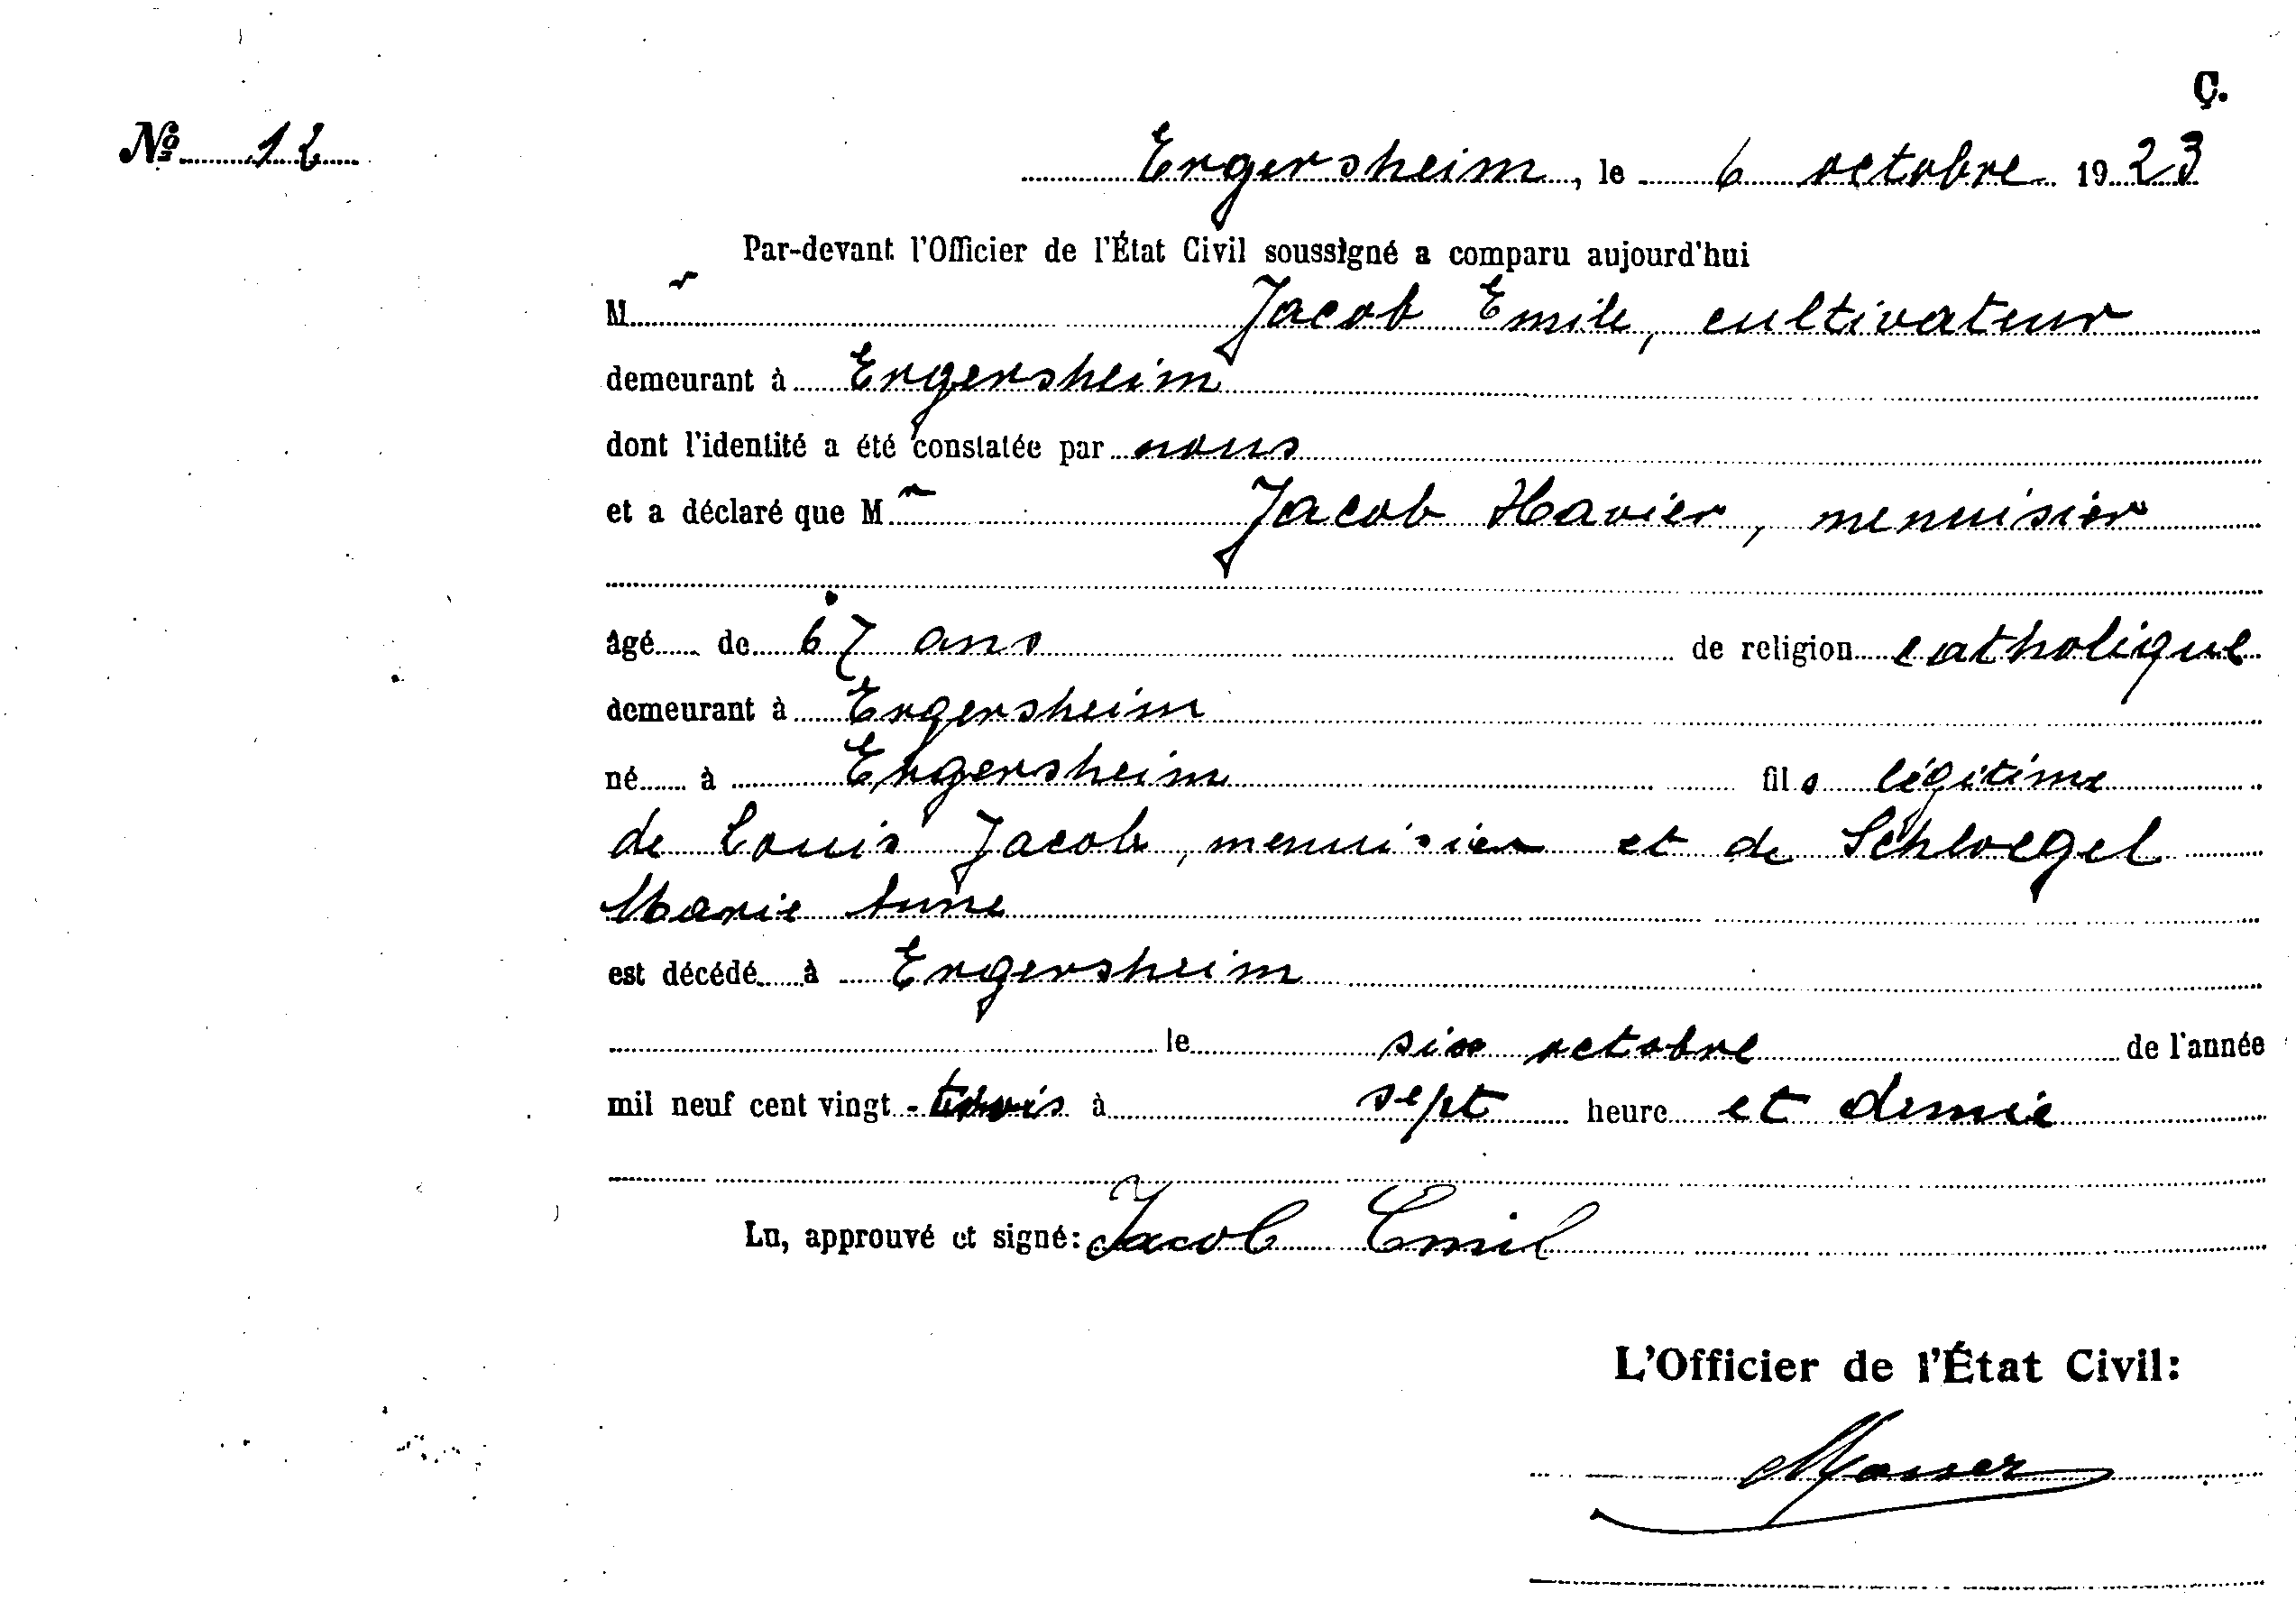 C.
Nº 12
Ergersheim, le 6 octobre 1923
Par-devant l'Officier de l'État Civil soussigné a comparu aujourd'hui
M r Jacob Emile, cultivateur
demeurant à Ergersheim
dont l'identité a été constatée par nous
et a déclaré que M r Jacob Xavier, menuisier
âgé de 67 ans de religion catholique
demeurant à Ergersheim
né à Ergersheim fils légitime
de Louis Jacob, menuisier et de Schloegel
Marie Anne
est décédé à Ergersheim
le six octobre de l'année
mil neuf cent vingt-trois à sept heure et demie
Lu, approuvé et signé: Jacob Emil
L'Officier de l'État Civil: